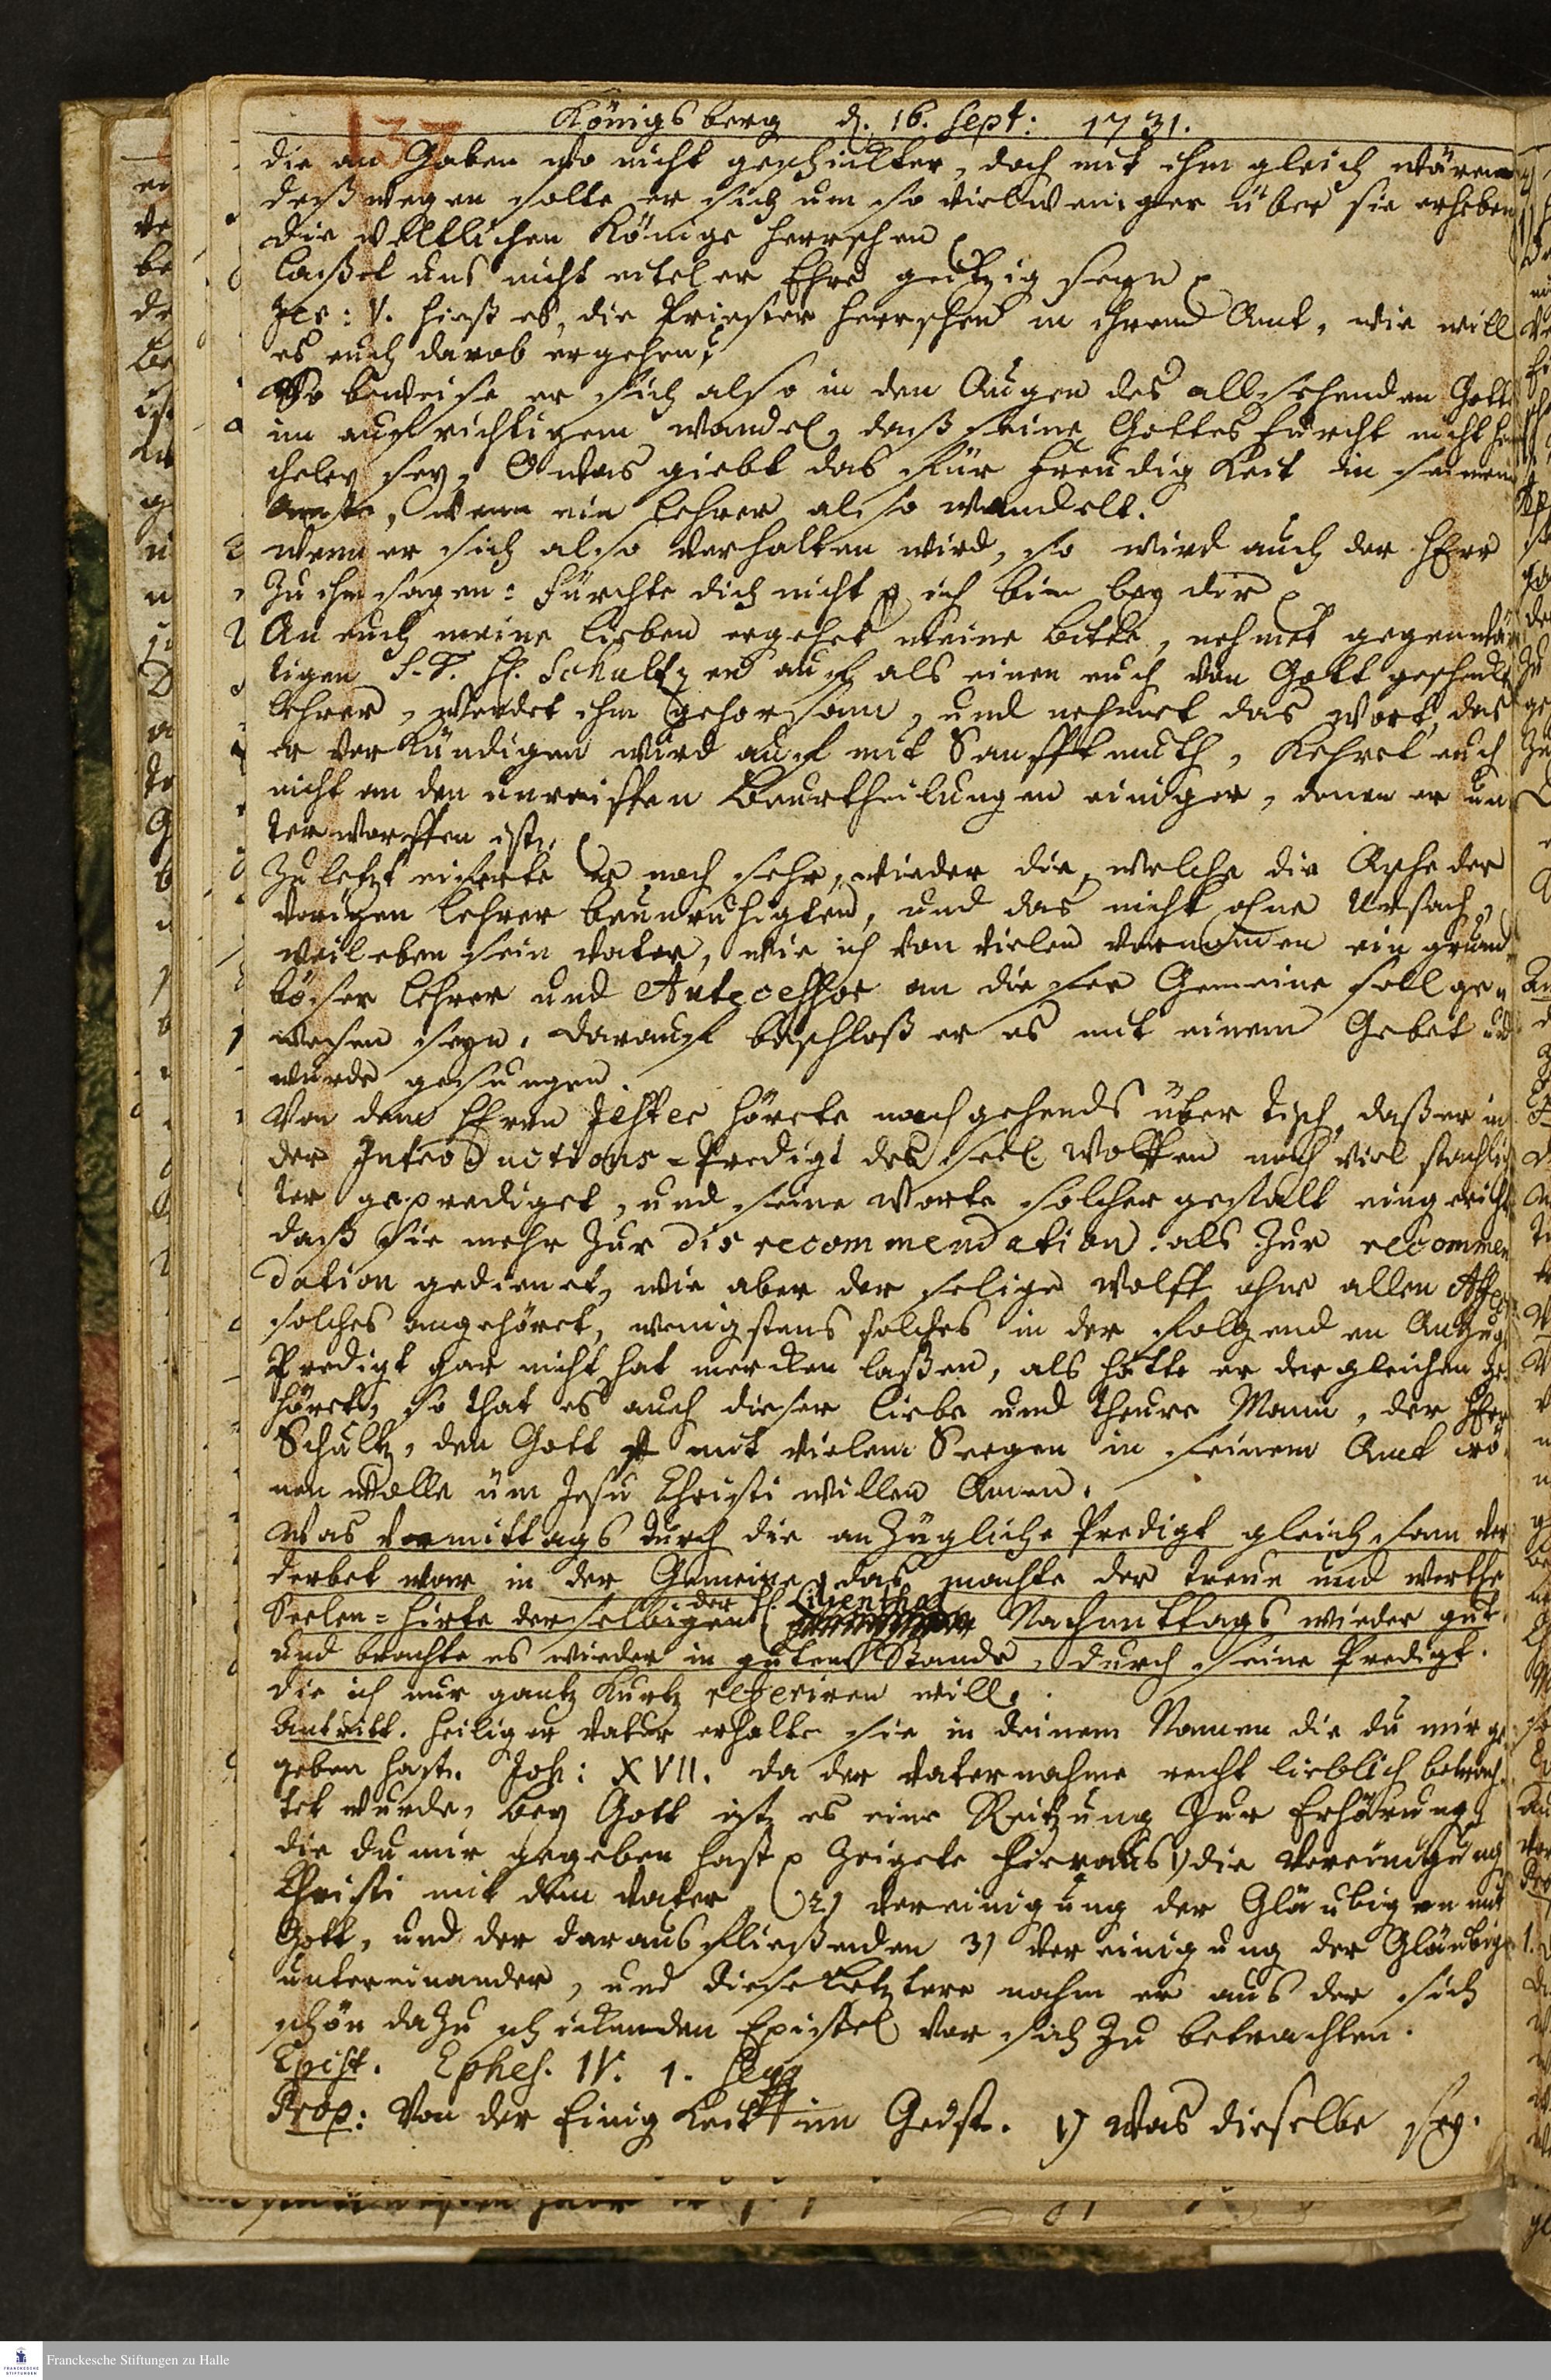 Königsberg d. 16. Sept: 1731.
137
die an Gaben wo nicht geschickter, doch mit ihm gleich wären
deßwegen solte er sich um so vielweniger über sie erheben
die weltlichen Könige herrschen
laßet uns nicht eiteler Ehre geitzig seyn
Jer: V. hieß es, die Priester herrschen in ihrem Amt, wie will
es euch darob ergehen,
So beweise er sich also in den Augen des allsehenden Gottes
im aufrichtigem wandel, daß seine Gottesfurcht nicht heu
cheley sey, O was giebt das für Freudigkeit in seinem
Amte, wenn ein Lehrer also wandelt.
wenn er sich also verhalten wird, so wird auch der HErr
zu ihm sagen: Fürchte dich nicht ich bin bey dir
An euch meine lieben ergehet meine bitte, nehmet gegenwär
tigen S. T. H. Schultzen auf als einen euch von Gott geschenckten
Lehrer, werdet ihm gehorsam, und nehmet das wort, das
er verkündigen wird auf mit Sanfftmuth, Kehret euch
nicht an den unreiffen Beurtheilungen einiger, denen er un
terworffen ist.
Zuletzt eiferte er noch sehr, wieder die, welche die Asche der
vorigen Lehrer beunruhigten, und das nicht ohne Ursach,
weil eben sein Vater, wie ich von vielen vernommen ein grund
böser Lehrer und Antecessor an dieser Gemeine soll ge
wesen seyn. darauf beschloß er es mit einem Gebet und
wurde gesungen
Von dem HErrn Jester hörete nachgehends über Tisch, daß er in
der Introductions-Predigt des seel Wolffen noch viel stachlich
ter geprediget, und seine worte solcher gestalt eingericht
daß sie mehr zur disrecommendation als zur recommen
dation gedienet, wie aber der selige Wolff ohne allen Affect
solches angehöret, wenigstens solches in der folgenden Anzugs
Predigt gar nicht hat mercken laßen, als hätte er dergleichen ge
höret, so that es auch dieser liebe und theure Mann, der HErr
Schultz, den Gott mit vielem Seegen in seinem Amt crö
nen wolle um Jesu Christi willen Amen.
Was Vormittags durch die anzügliche Predigt gleichsam ver
derbet war in der Gemeine, das machte der treue und werthe
Seelen-Hirte derselbigen der H. Lilienthal Nachmittags wieder gut
und brachte es wieder in guten Stande, durch seine Predigt.
die ich nur gantz kurtz referiren will.
Antritt. Heiliger Vater erhalte sie in deinem Namen die du mir ge
geben hast. Joh: XVII. da der Vaternahme recht lieblich betrach
tet wurde, bey Gott ist es eine Reitzung zur Erhörung
die du mir gegeben hast zeigete hieraus 1) die Vereinigung
Christi mit dem Vater 2) Vereinigung der Gläubigen mit
Gott, und der daraus fließenden 3) Vereinigung der Gläubigen
untereinander, und diese letztere nahm er aus der sich
schön dazu schickenden Epistel vor sich zu betrachten.
Epist. Ephes. IV. 1. seqq
Prop: Von der Einigkeit im Geist. 1) Was dieselbe sey.
Franckesche Stiftungen zu Halle